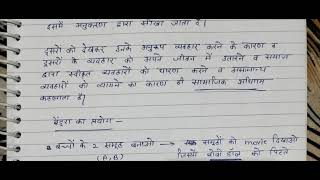 इसमें अनुकरण द्वारा सीखा जाता है।
दूसरों को देखकर उनके अनुरूप व्यवहार करने के कारण व
दूसरों के व्यवहार को अपने जीवन में उतारने व समाज
द्वारा स्वीकृत व्यवहारों को धारण करने व असामान्य
व्यवहारों को त्यागने का कारण ही सामाजिक अधिगम
कहलाता है।
बंडूरा का प्रयोग -
बच्चों के 2 समूह बनाओ → समूहों को movie दिखाओ
(A, B) जिसमें बोबो डॉल को पिटते